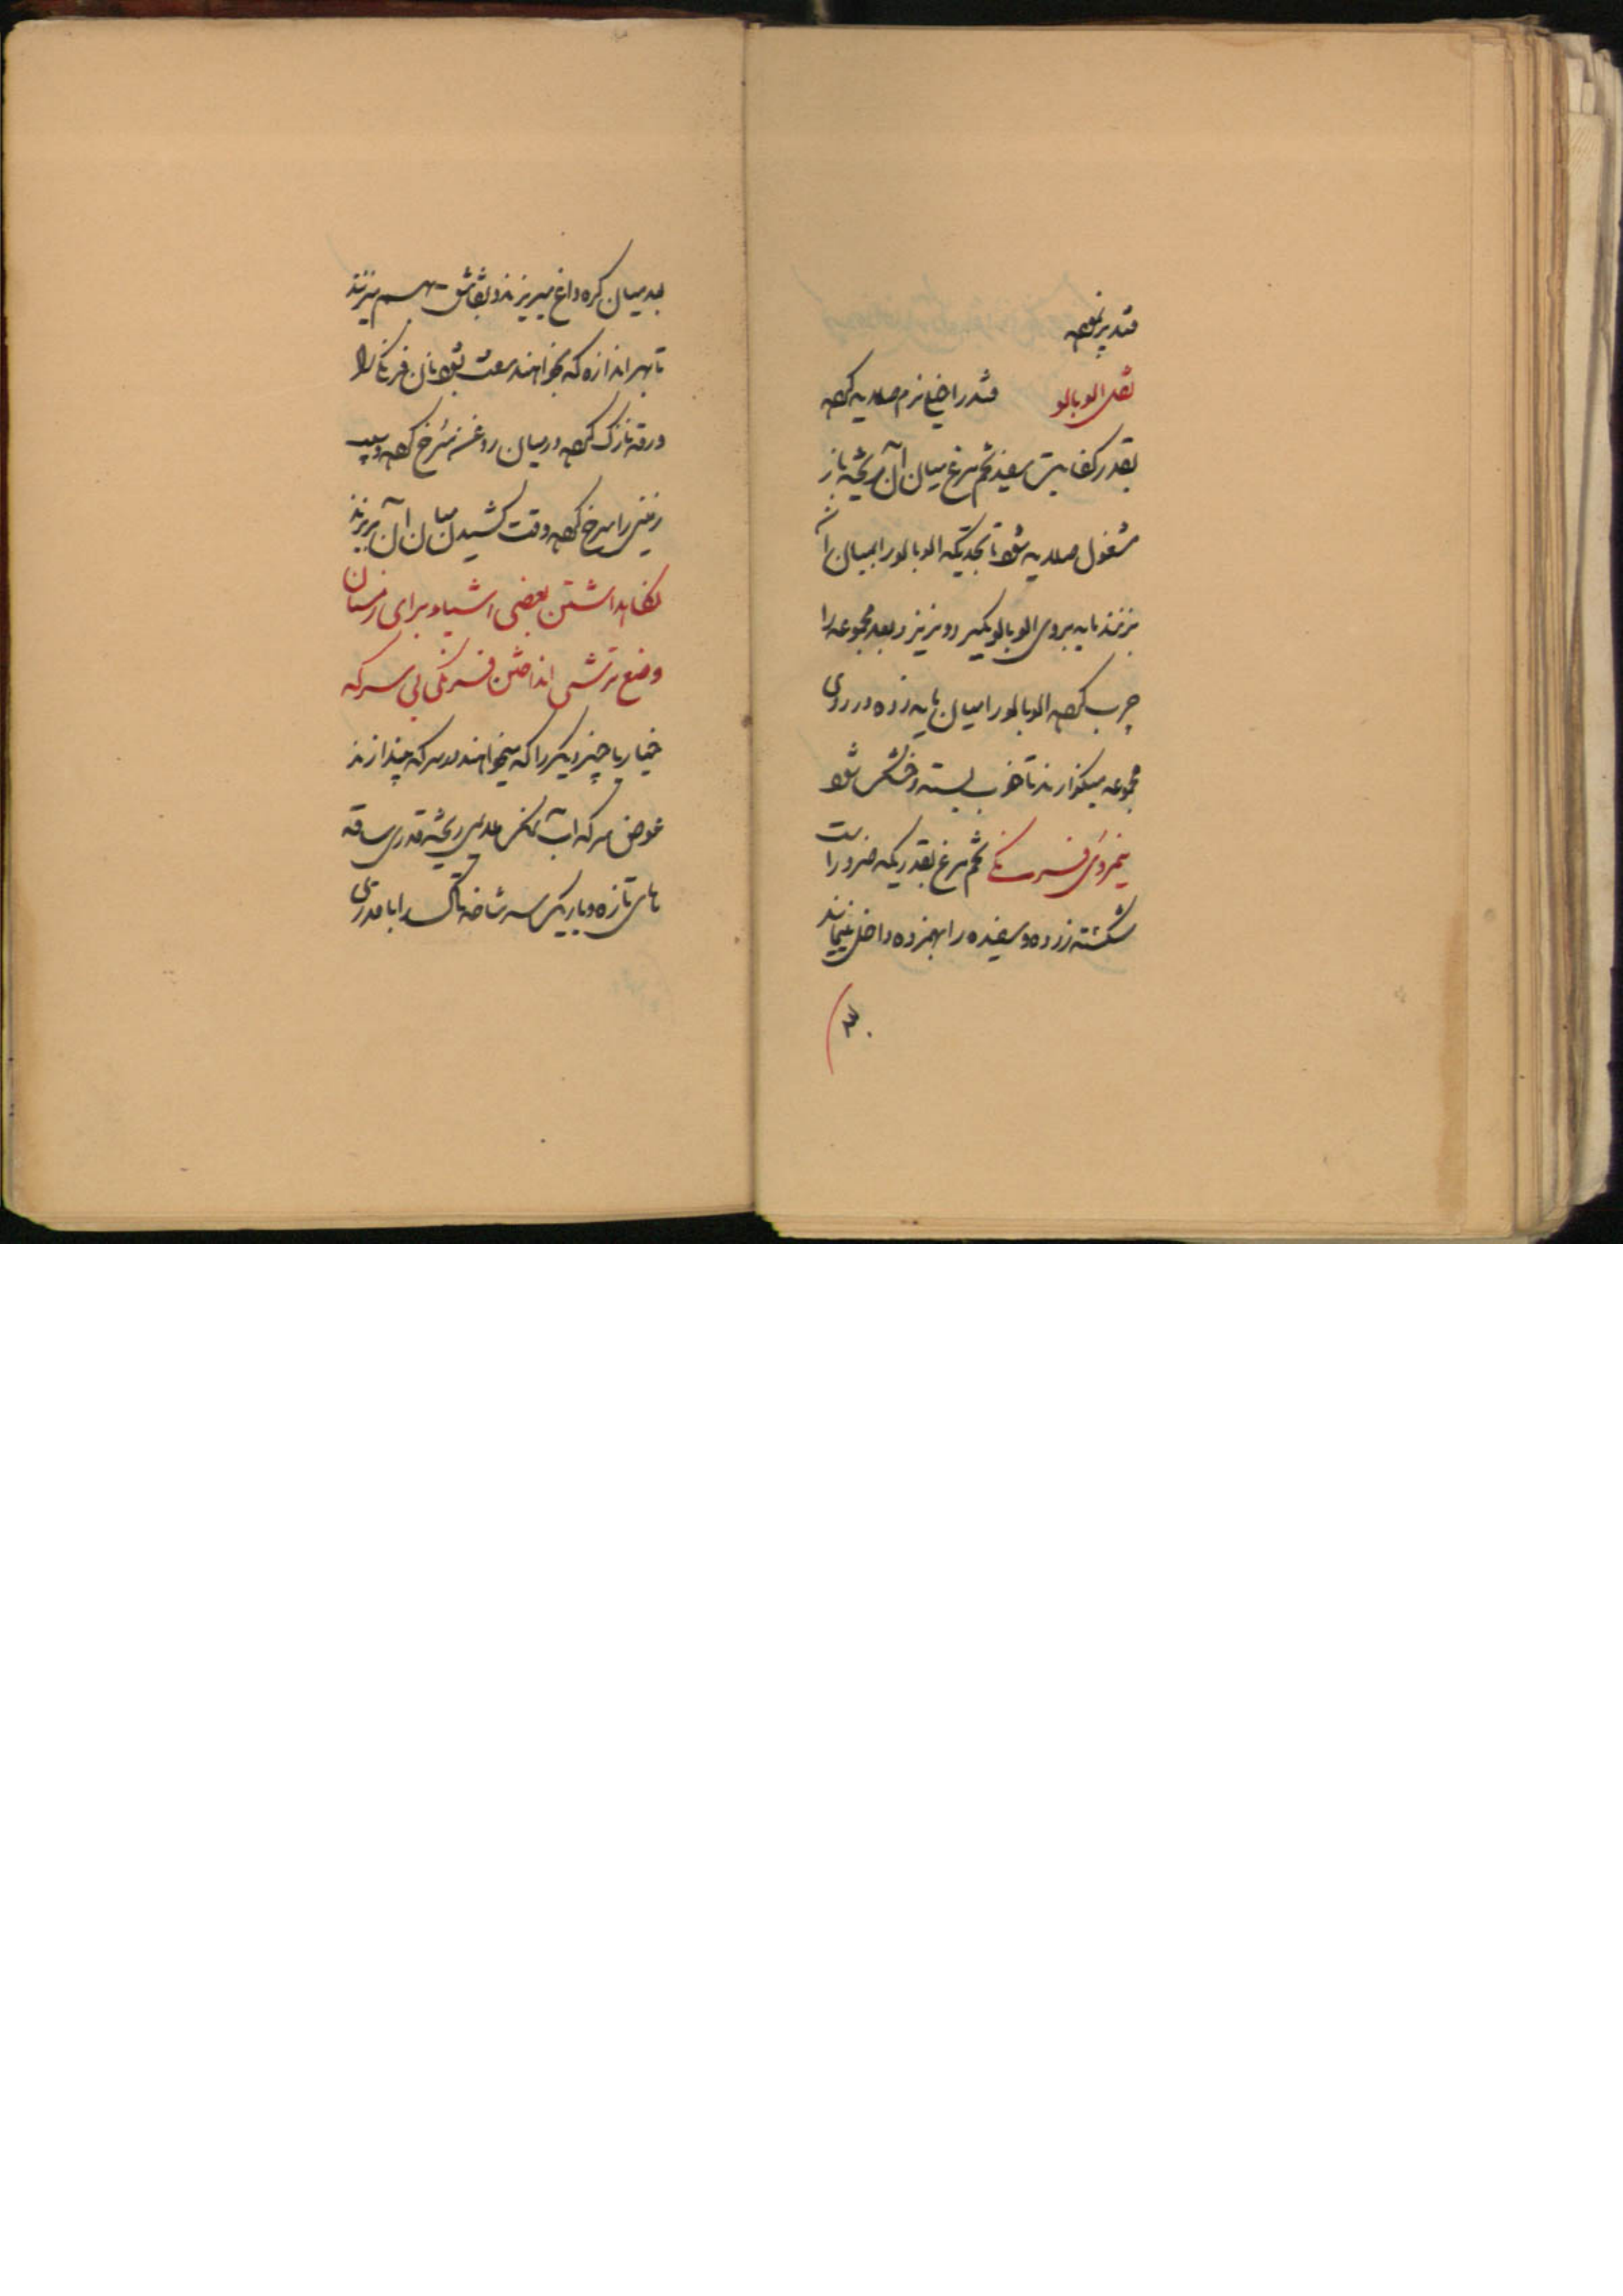 قند بریزند
نقل الوبالو قند را خیلی نرم صلایه کرده
بقدر کفایت سفیده تخم مرغ میان آن ریخته باز
مشغول صلایه شود تا بحدیکه الوبالو را بمیان آن
بزنند مایه بروی الوبالو بگیرد و نریزد بعد مجموعه را
چرب کرده الوبالو را میان مایه زده در روی
مجموعه میگذارند تا خوب بسته و خشک شود
نیمروی فرنگی تخم مرغ بقدریکه ضرور است
شکسته زرده و سفیده را بهم زده داخل مینمایند
۳۰
بعد میان کره داغ میریزند و بقاشق بهم میزنند
تا بهر اندازه که بخواهند سفت شود نان فرنگی را
ورقه نازک کرده در میان روغن سرخ کرده و سیب
زمینی را سرخ کرده وقت کشیدن میان آن بریزند
نگاهداشتن بعضی اشیاء برای زمستان
وضع ترشی انداختن فرنگی بی سرکه
خیار یا چیز دیگر را که میخواهند در سرکه بیندازند
عوض سرکه آب نمک ریخته قدری ساقه
های تازه و باریک سه شاخه تاک را با قدری